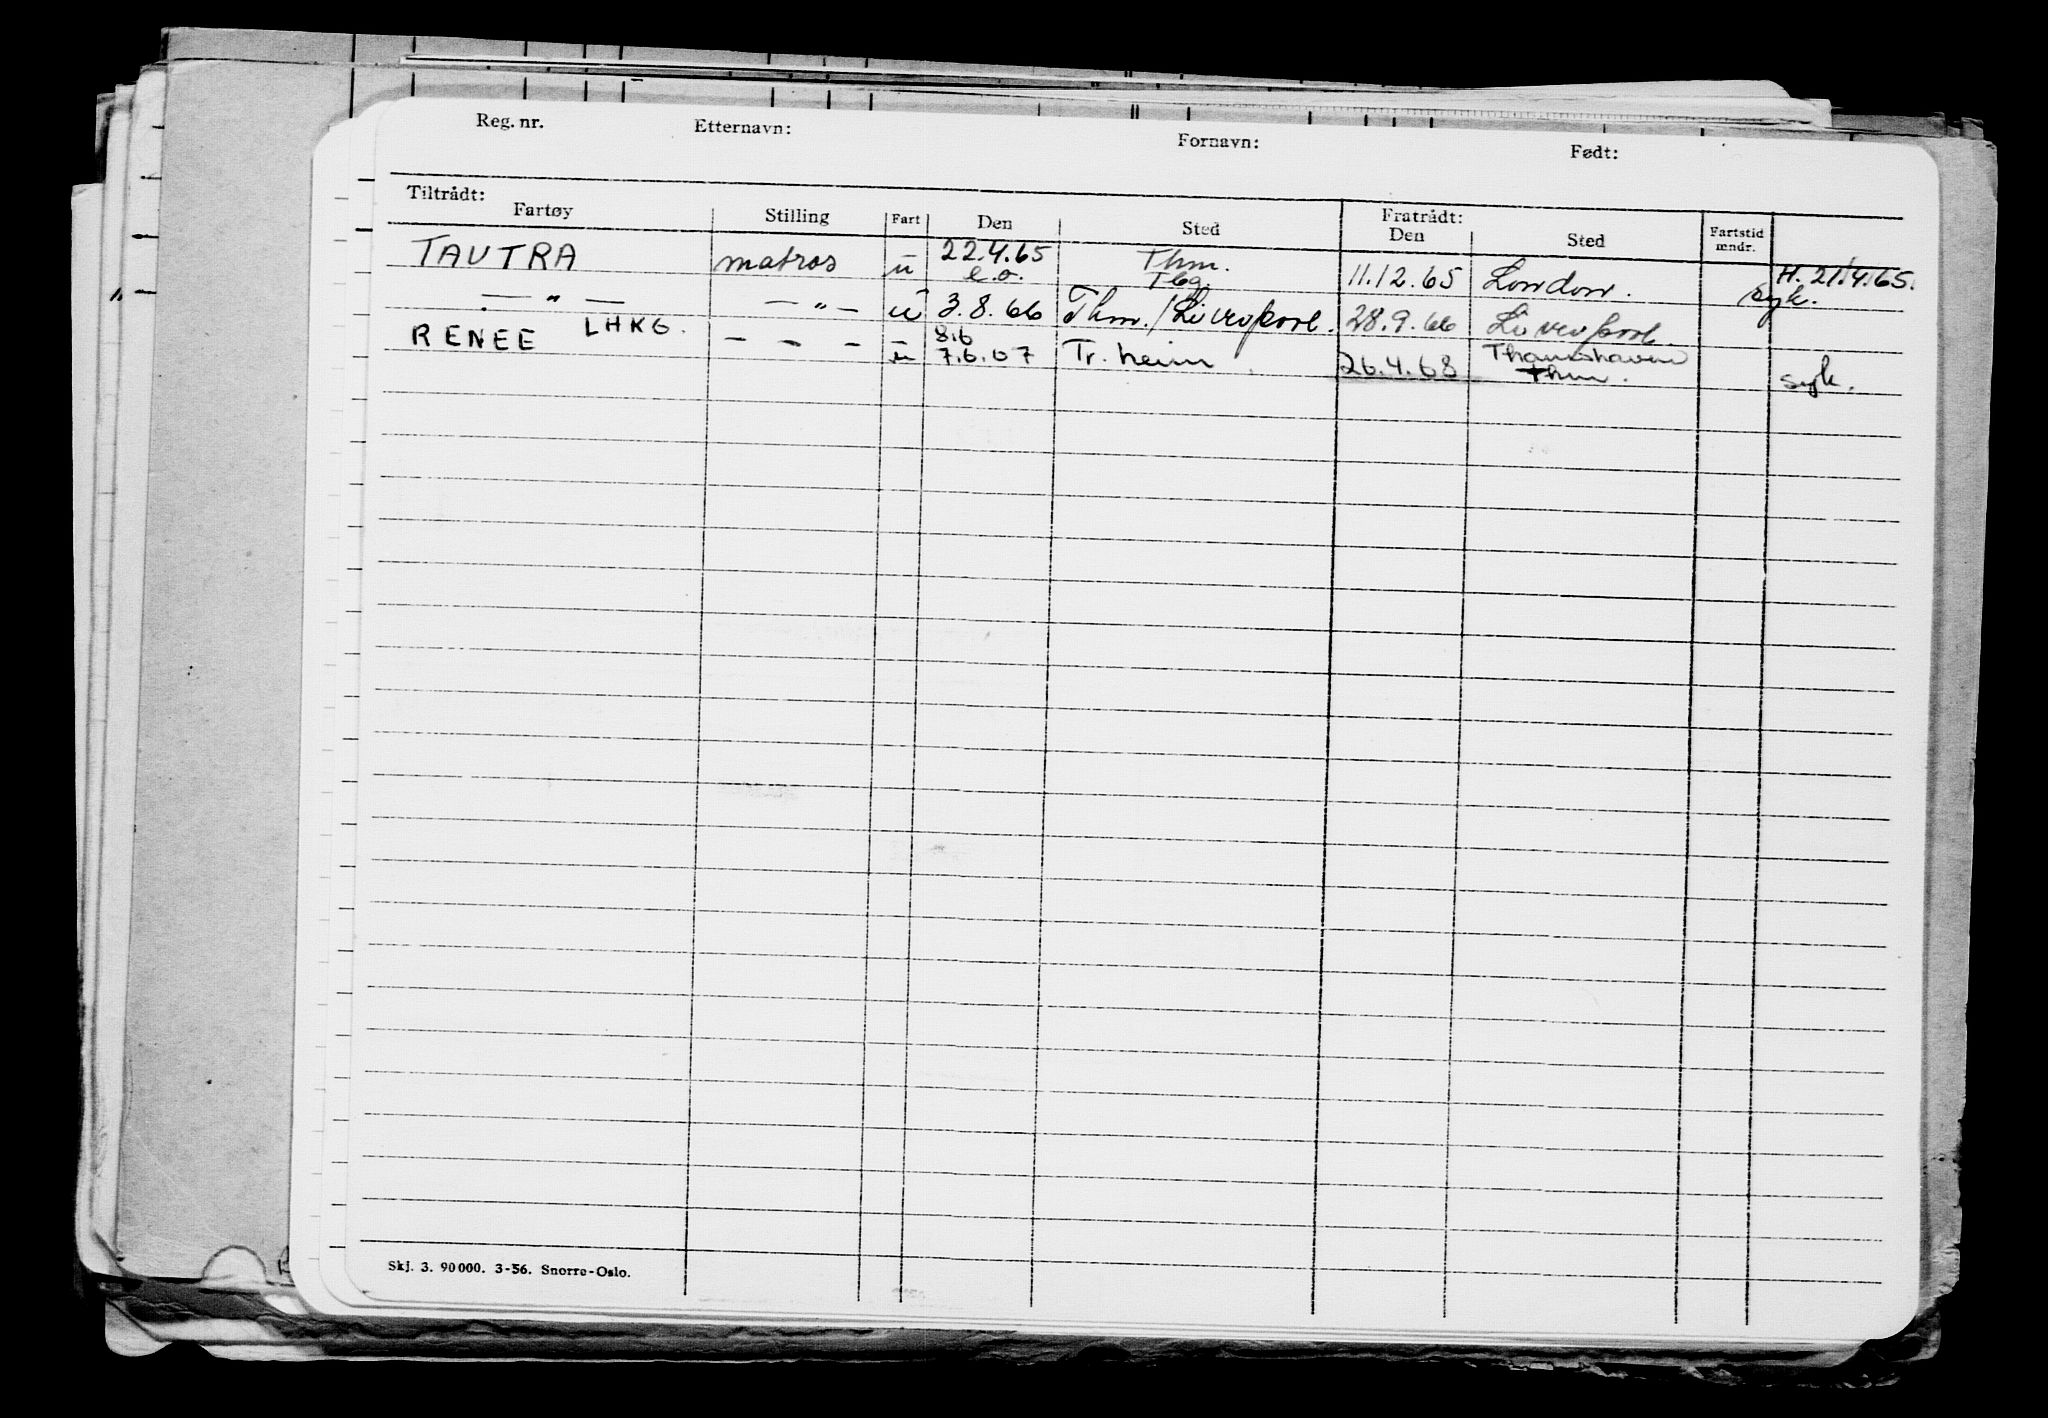 Reg. nr. Etternavn: Fornavn: Født:
Tiltrådt: Fratrådt:
Fartøy Stilling Fart Den Sted Den Sted Fartstid mndr.
TAUTRA matros u 22.4.65 Thm. 11.12.65 London. H. 21.4.65.
e.o. Tbg. syk.
— " — — " — u 3.8.66 Thm./Liverpool. 28.9.66 Liverpool.
RENEE LHKG. — — — — 8.6 Thamshavn
u 7.6.67 Tr. heim 26.4.68 Thm. syk.
Skj. 3. 90 000. 3-56. Snorre-Oslo.